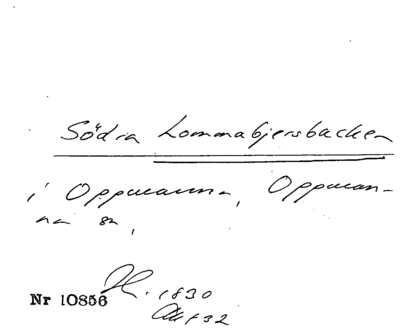 Södra Lommabjersbacken
i Oppmanna, Oppman-
na sn,
H. 1830
Nr 10856
Akt 32